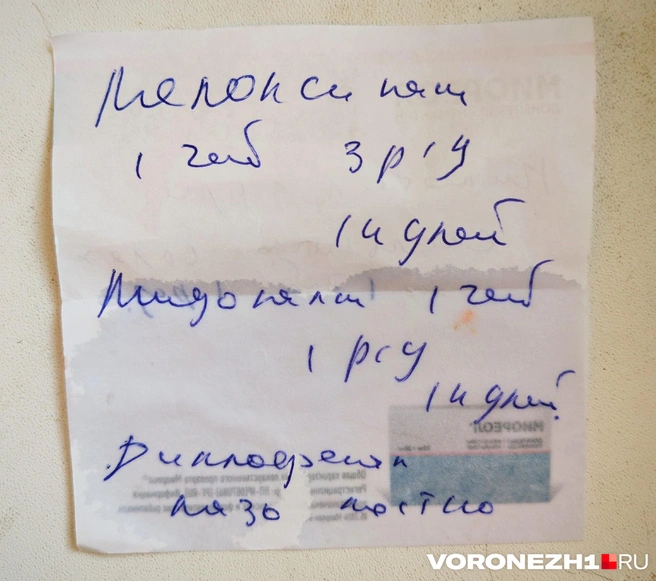 Мелоксикам
1 таб 3 р/д
14 дней
Мидокалм 1 таб
1 р/д
14 дней
Диклофенак
мазь местно
МИОРЕОЛ
VORONEZH1.RU